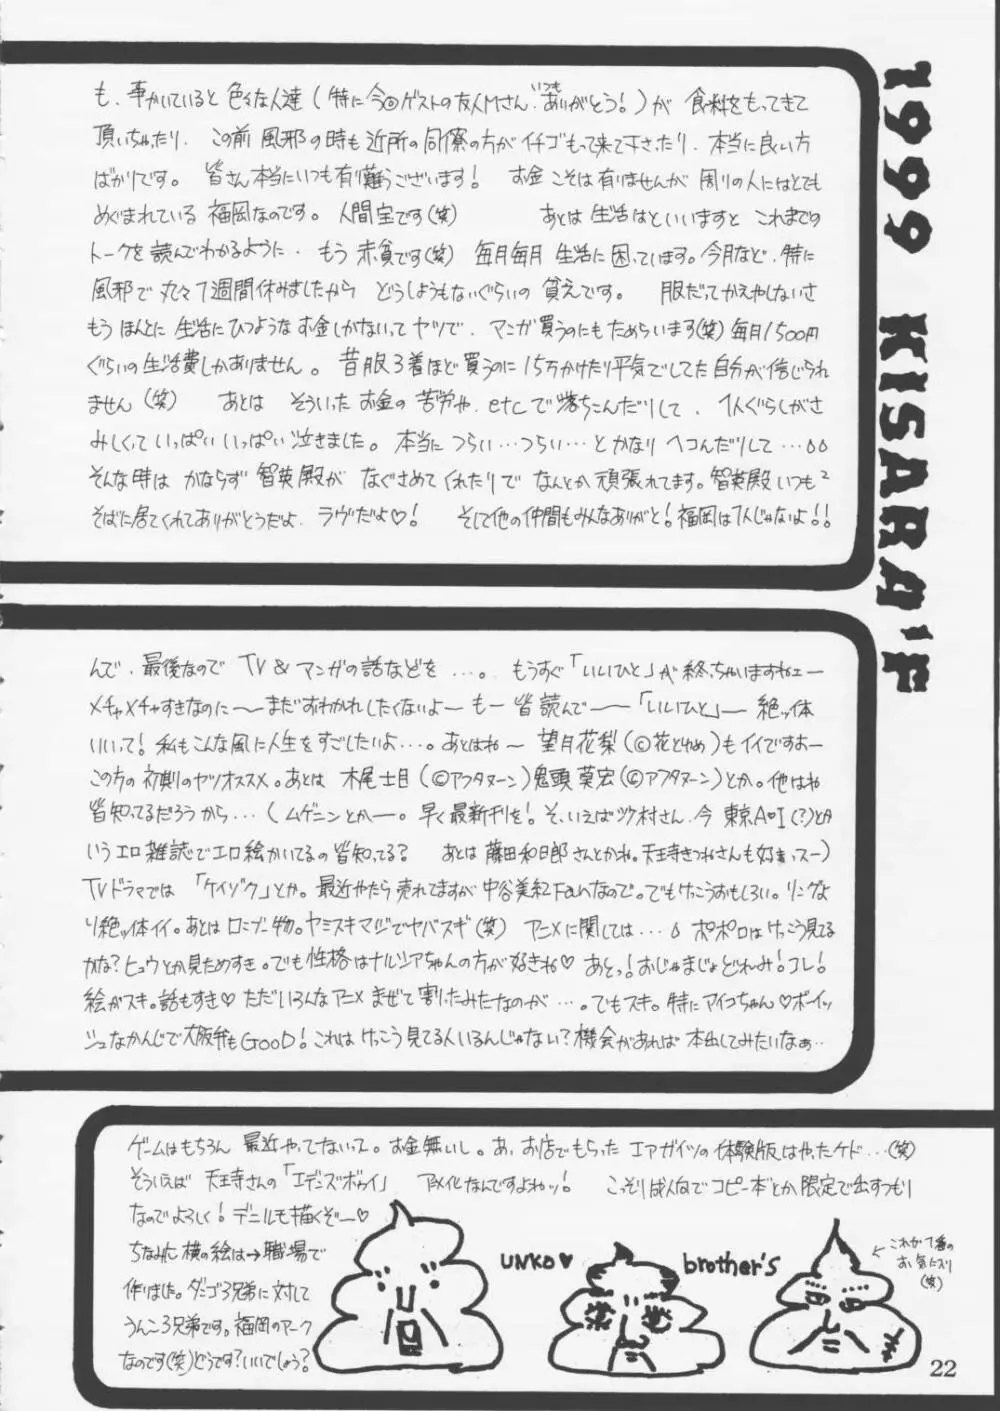 も、事かいていると色々な人達(特に今回ゲストの友人Mさん、いつもありがとう!)が 食料をもってきて
頂いちゃたり、この前 風邪の時も近所の同僚の方がイチゴもって来て下さたり、本当に良い方
ばかりです。皆さん本当にいつも有り難うございます! お金こそは有りませんが 周りの人にはとても
めぐまれている 福岡なのです。人間宝です(笑) あとは 生活はといいますと これまでの
トークを 読んでわかるように、もう 赤貧です(笑) 毎月毎月 生活に困っています。今月など、特に
風邪で丸々1週間休みましたから どうしようもないぐらいの 貧乏です。 服だってかえやしないさ
もう ほんとに 生活にひつような お金しかないってヤツで、マンガ買うのにもためらいます(笑) 毎月1500円
ぐらいの生活費しかありません。昔服3着ほど買うのに15万かけたり平気でしてた自分が信じられ
ません(笑) あとは そういった お金の 苦労や、etcで落ちこんだりして、1人ぐらしがさ
みしくって いっぱい いっぱい 泣きました。本当に つらい…つらい…とかなり ヘコんだりして…
そんな時は かならず 智英殿が なぐさめて くれたりで なんとか 頑張れてます。智英殿いつも2
そばに居てくれてありがとうだよ、ラヴだよ♡! そして他の仲間もみんなありがと!福岡は1人じゃないよ!!
1999 KISARA'F
んで、最後なので TV & マンガの話などを …。 もうすぐ「いいひと」が終っちゃいますねェー
メチャメチャすきなのに〜まだおわかれしたくないよ〜もー 皆読んで〜「いいひと」〜絶ッ体
いいって!私もこんな風に人生をすごしたいよ…。あとはね〜 望月花梨(©花とゆめ)もイイですおー
この方の初期のヤツオススメ。あとは 木尾士目(©アフタヌーン)鬼頭莫宏(©アフタヌーン)とか。他はね
皆知ってるだろうから…(ムゲニンとかー。早く最新刊を!。そーいえばツク村さん、今 東京A♥I(?)とか
いうエロ雑誌でエロ絵かいてるの皆知ってる? あとは 藤田和日郎さんとかね。天王寺きつねさんも好きっスー)
TVドラマでは「ケイゾク」とか。最近やたら売れてますが中谷美紀Fanなので。でもけっこうおもしろい。リングな
り絶ッ体イイ。あとはロミプー物。ヤミスキマジでヤバスギ(笑) アニメに関しては… ポポロはけっこう見てる
かな?ヒュウとか見ためすき。でも性格はナルシアちゃんの方が好きね♡ あとっ!おじゃまじょどれみ!コレ!
絵がスキ。話もすき♡ ただいろんなアニメ まぜて割ったみたなのが…。でもスキ。特にアイコちゃん♡ボーイッ
シュなかんじで大阪弁もGooD!これはけっこう見てる人いるんじゃない?機会があれば 本出してみたいなぁ…
ゲームはもちろん 最近やってないって。お金無いし。あ、お店でもらった エアガイツの体験版はやったケド…(笑)
そういえば 天王寺さんの「エデンズボゥイ」 アニメ化なんですよねッ! こっそり成人向でコピー本とか限定で出すつもり
なのでよろしく!デニルモ描くぞー♡
ちなみに横の絵は→職場で
作りました。ダンゴ3兄弟に対して
うんこ3兄弟です。福岡のマーク
なのです(笑)どうです?いいでしょう?
UNKO♥ brother's
これが1番の
お気に入り
(笑)
22